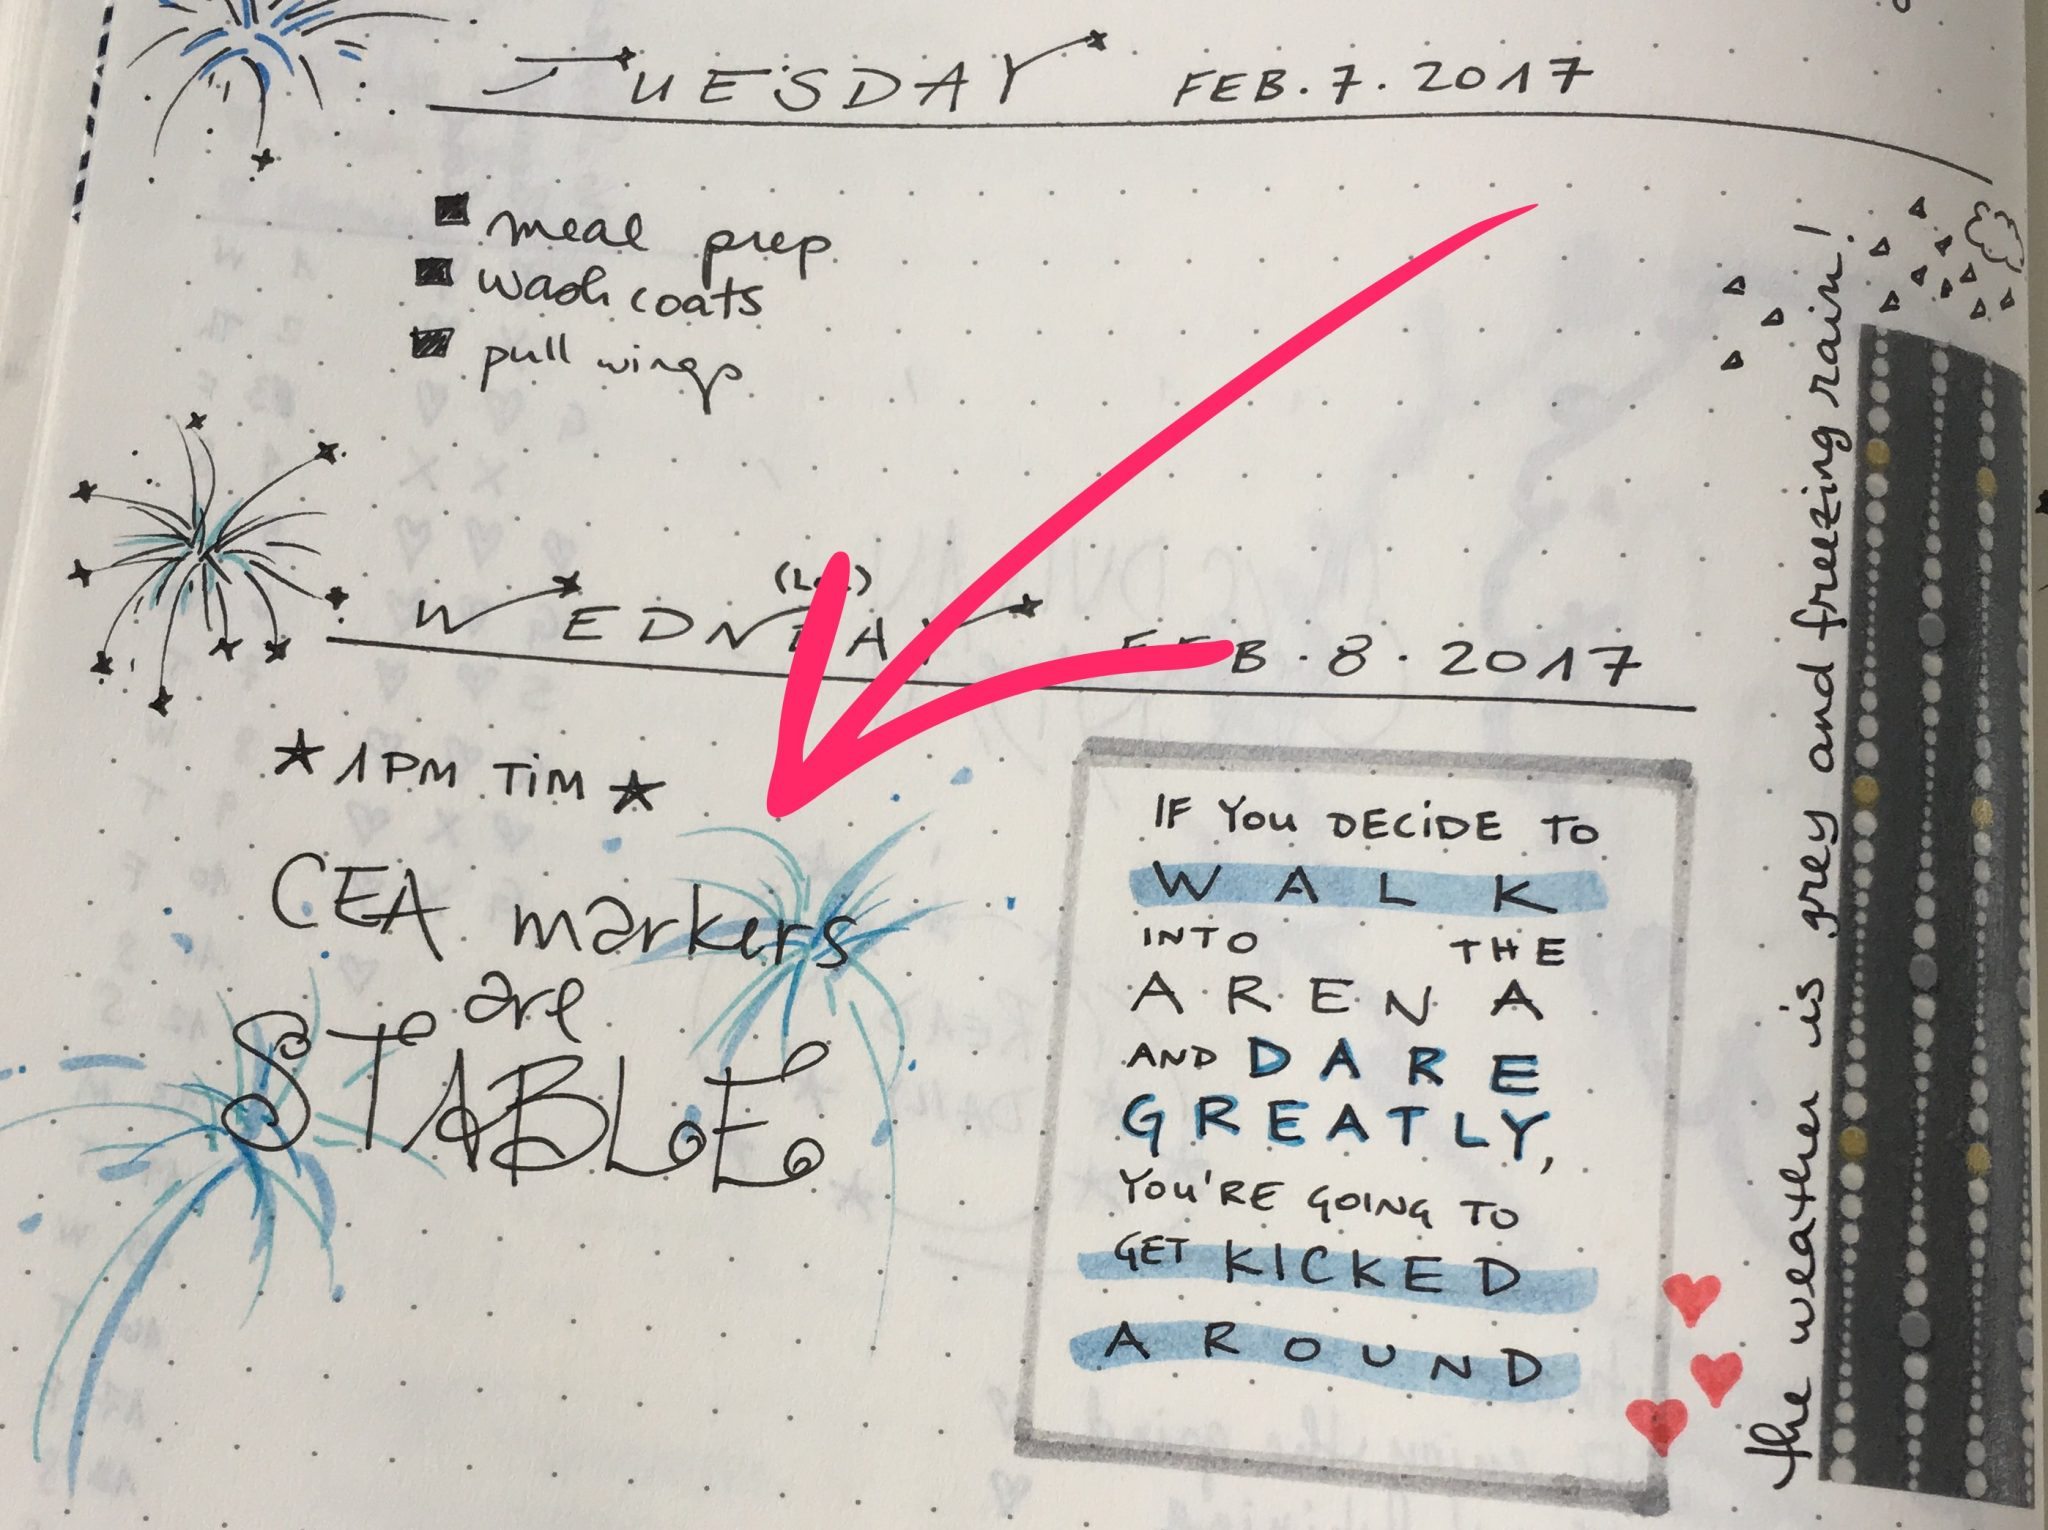 TUESDAY FEB.7.2017
meal prep
wash coats
pull wings
WEDNDAY FEB.8.2017
1PM TIM
CEA markers
are
STABLE
IF YOU DECIDE TO
WALK
INTO THE
ARENA
AND DARE
GREATLY,
YOU'RE GOING TO
GET KICKED
AROUND
the weather is grey and freezing rain!